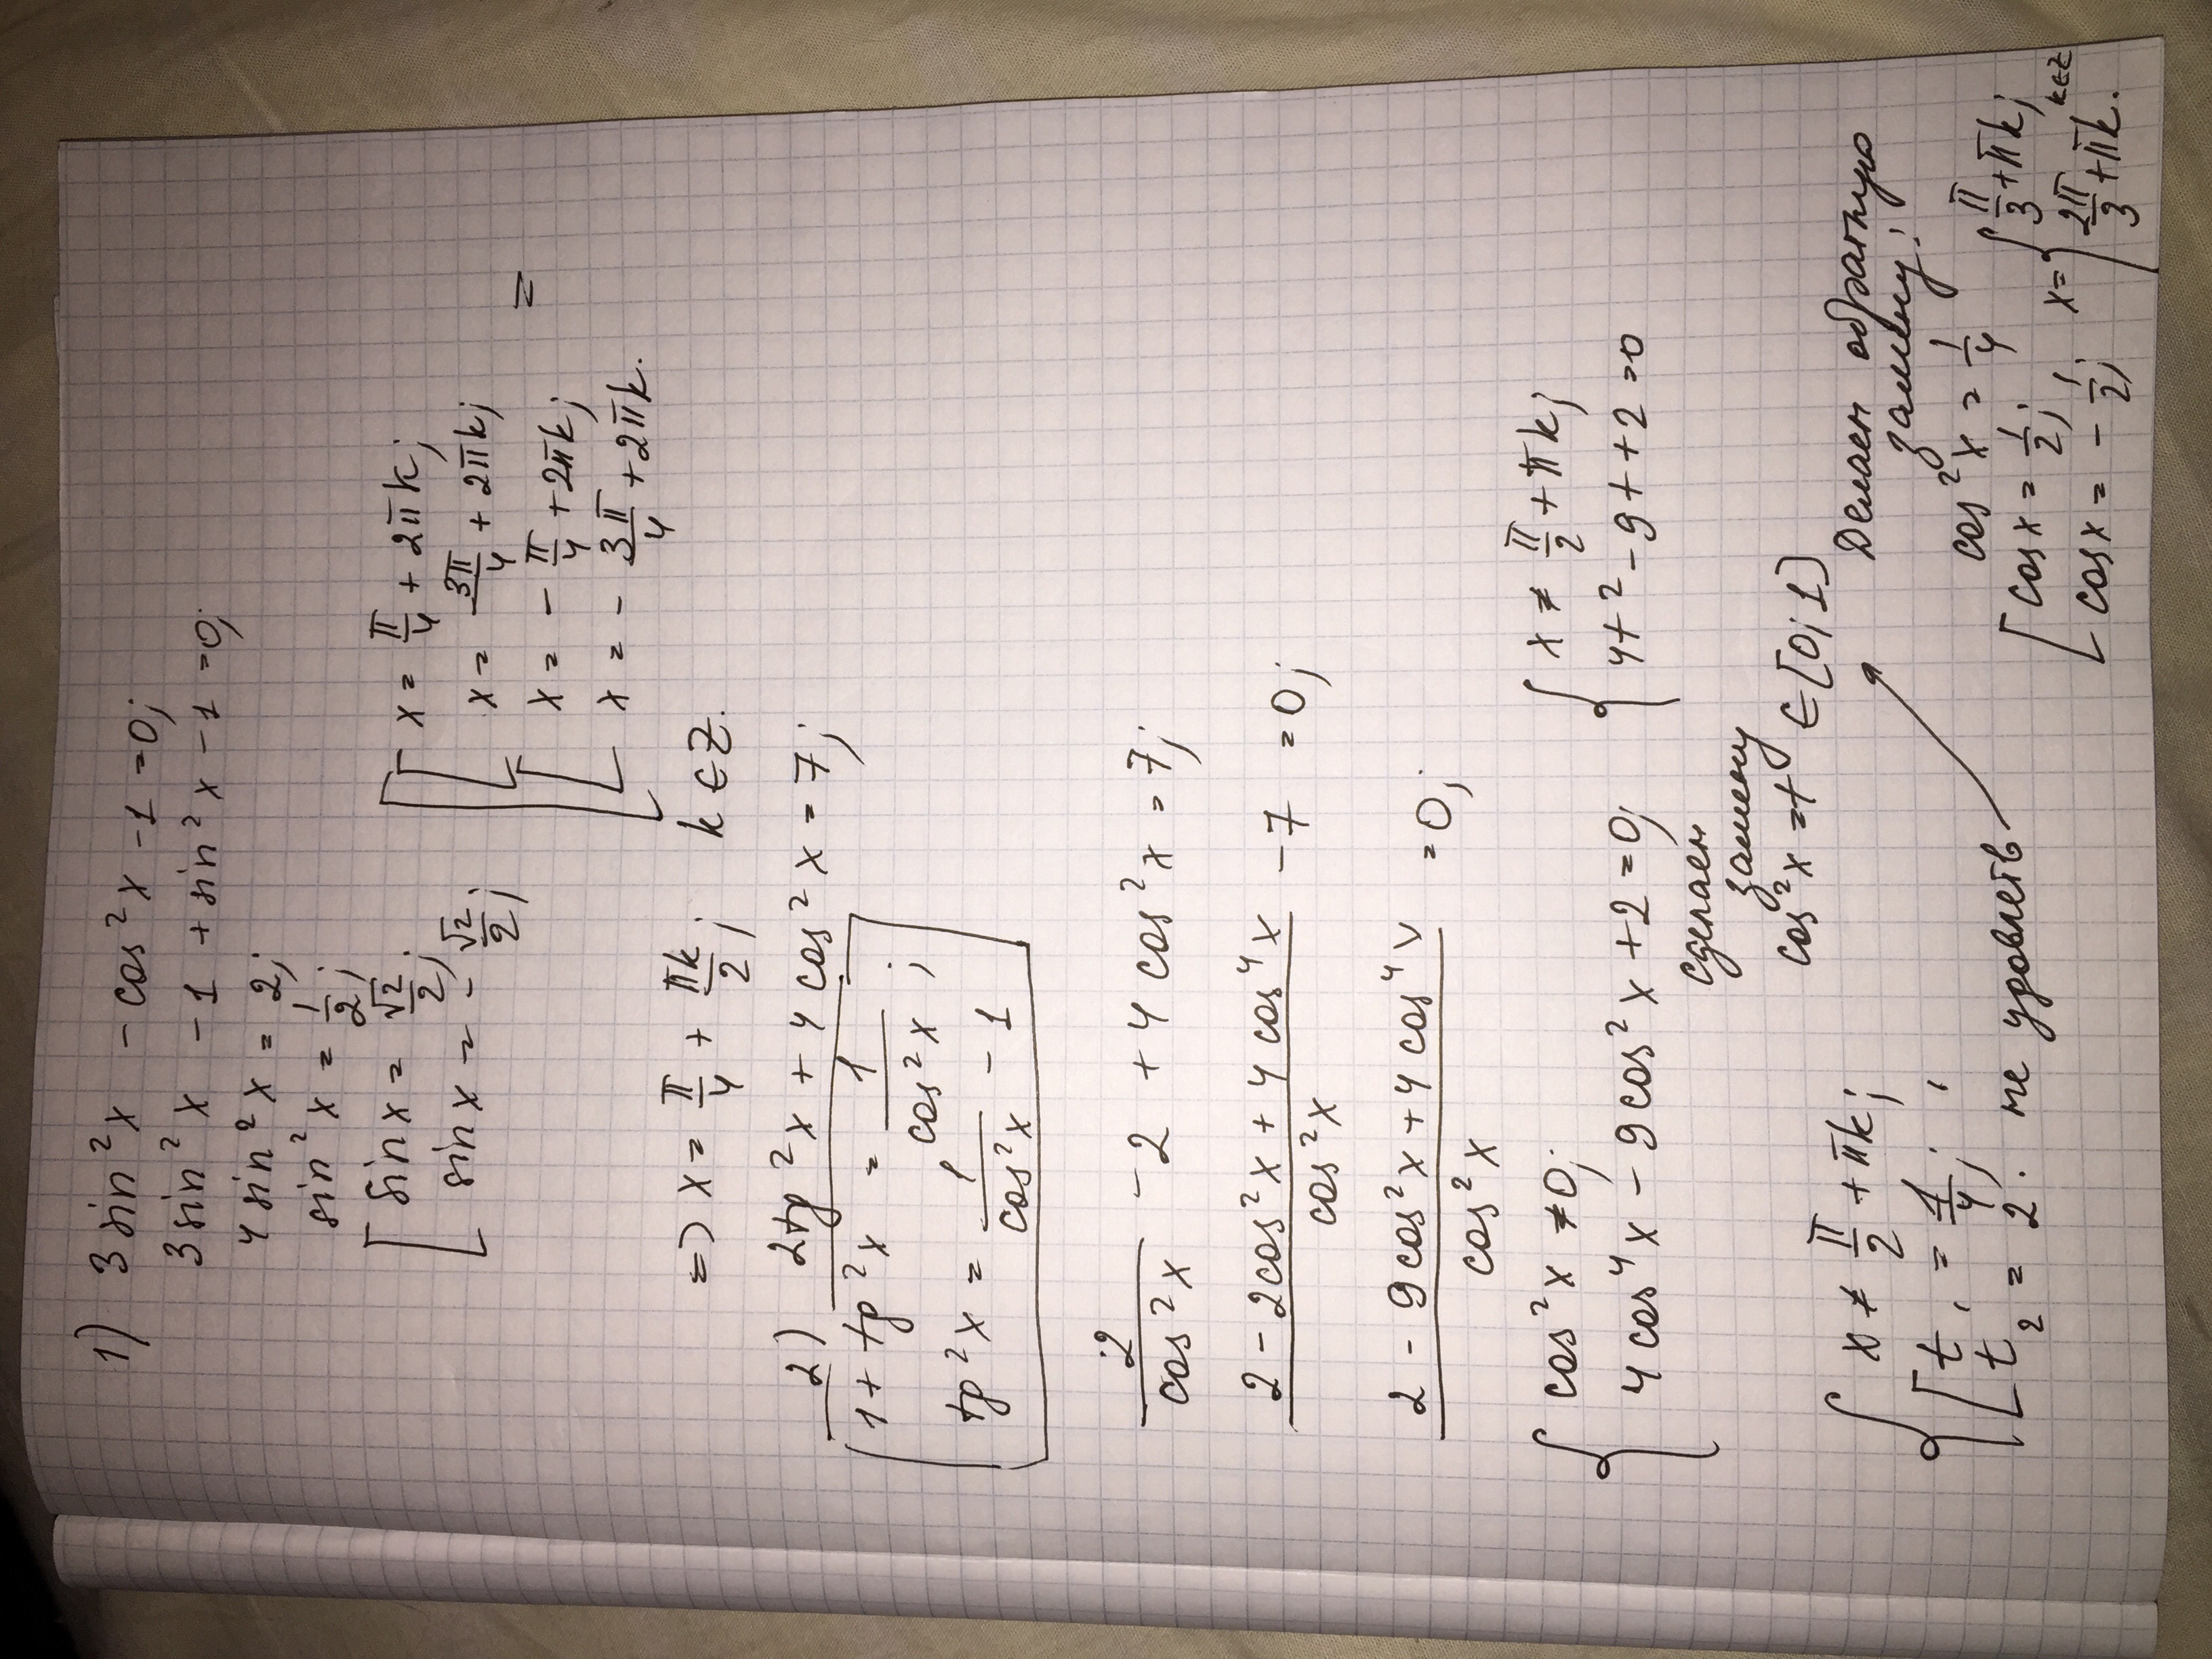 1) 3 sin²x - cos²x - 1 = 0;
3 sin²x - 1 + sin²x - 1 = 0;
4 sin²x = 2;
sin²x = 1/2;
[ sin x = √2/2;
[ sin x = - √2/2;
[ x = π/4 + 2πk;
x = 3π/4 + 2πk;
[ x = - π/4 + 2πk;
x = - 3π/4 + 2πk.
=
=> x = π/4 + πk/2; k ∈ Z.
2) 2tg²x + 4 cos²x = 7;
1 + tg²x = 1/cos²x;
tg²x = 1/cos²x - 1
2/cos²x - 2 + 4 cos²x = 7;
(2 - 2cos²x + 4 cos⁴x)/cos²x - 7 = 0;
(2 - 9cos²x + 4 cos⁴x)/cos²x = 0;
{ cos²x ≠ 0;
4 cos⁴x - 9cos²x + 2 = 0;
сделаем
замену
cos²x = t ∈ [0; 1]
{ x ≠ π/2 + πk;
4t² - 9t + 2 = 0
{ x ≠ π/2 + πk;
[ t₁ = 1/4;
[ t₂ = 2. не удовлетв
Делаем обратную
замену:
cos²x = 1/4
[ cos x = 1/2;
[ cos x = - 1/2;
x = { π/3 + πk;
2π/3 + πk. k∈Z